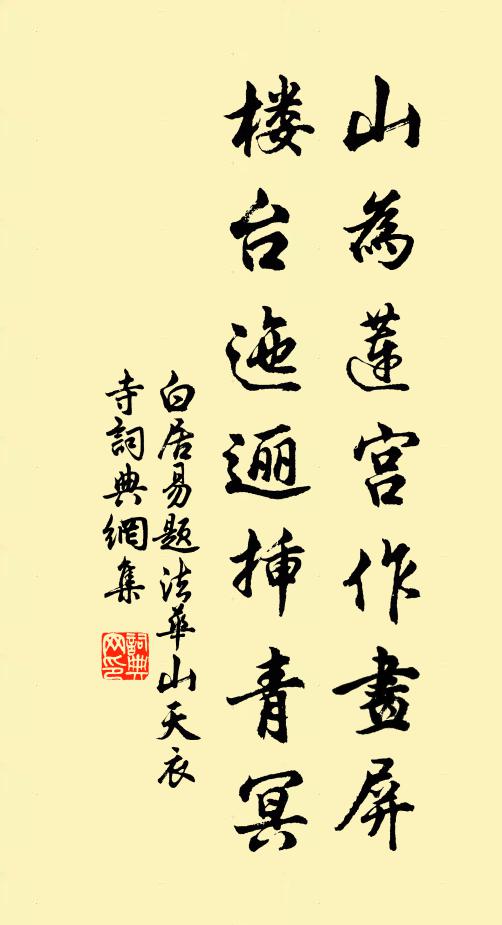 山為蓮宮作畫屏
楼台迤逦插青冥
白居易题法華山天衣
寺詞典網集
詞典网印